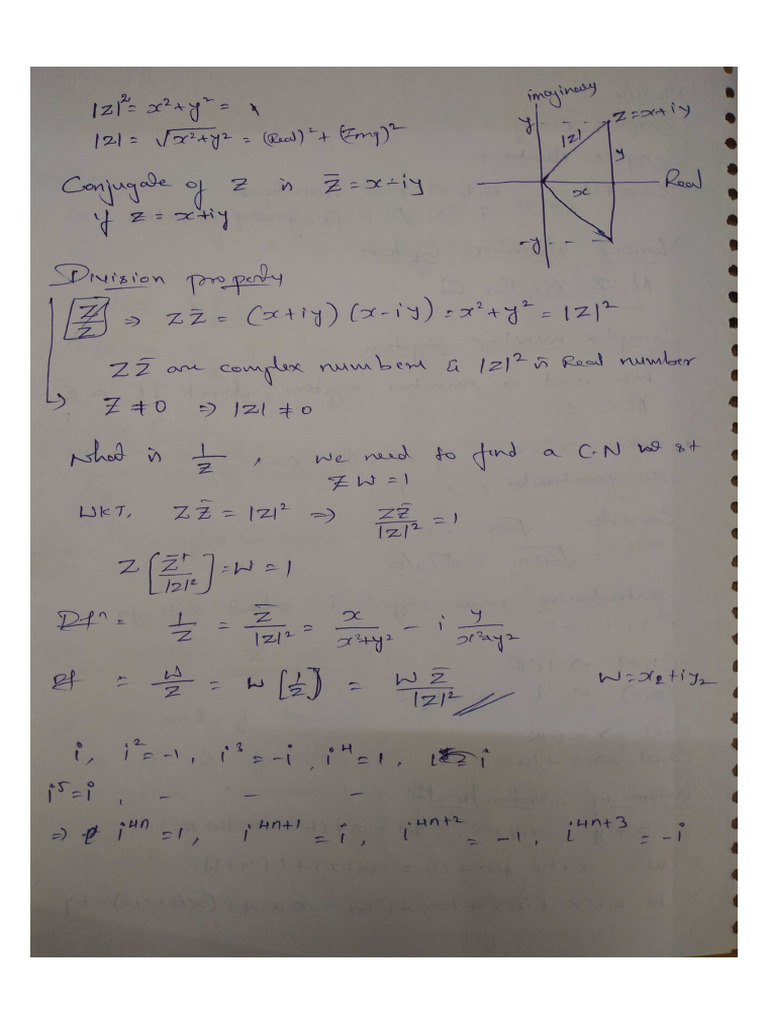 |z|² = x²+y² =
|z| = √x²+y² = (Real)² + (Img)²
imaginary
y
z = x+iy
|z|
y
x
Real
-y
Conjugate of z is z̄ = x-iy
if z = x+iy
Division property
z̄/z ⇒ z z̄ = (x+iy)(x-iy) = x²+y² = |z|²
z z̄ are complex numbers & |z|² is Real number
z ≠ 0 ⇒ |z| ≠ 0
What is 1/z , we need to find a C.N w st
z w = 1
WKT, z z̄ = |z|² ⇒ z z̄/|z|² = 1
z [z̄/|z|²] = w = 1
Dfⁿ = 1/z = z̄/|z|² = x/x²+y² - i y/x²+y²
= w/z = w [1/z] = w z̄/|z|²
w = x₂+iy₂
i, i² = -1, i³ = -i, i⁴ = 1, = i
i⁵ = i , - - -
⇒ i⁴ⁿ = 1, i⁴ⁿ⁺¹ = i, i⁴ⁿ⁺² = -1, i⁴ⁿ⁺³ = -i